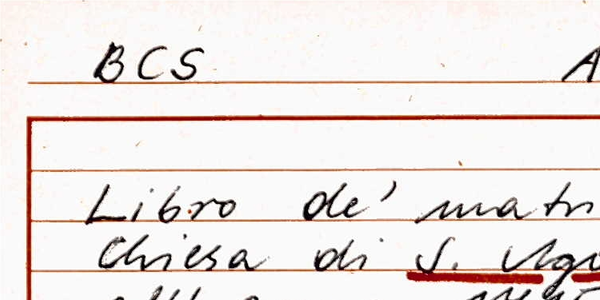 BCS A
Libro de' matri
Chiesa di S. Ago